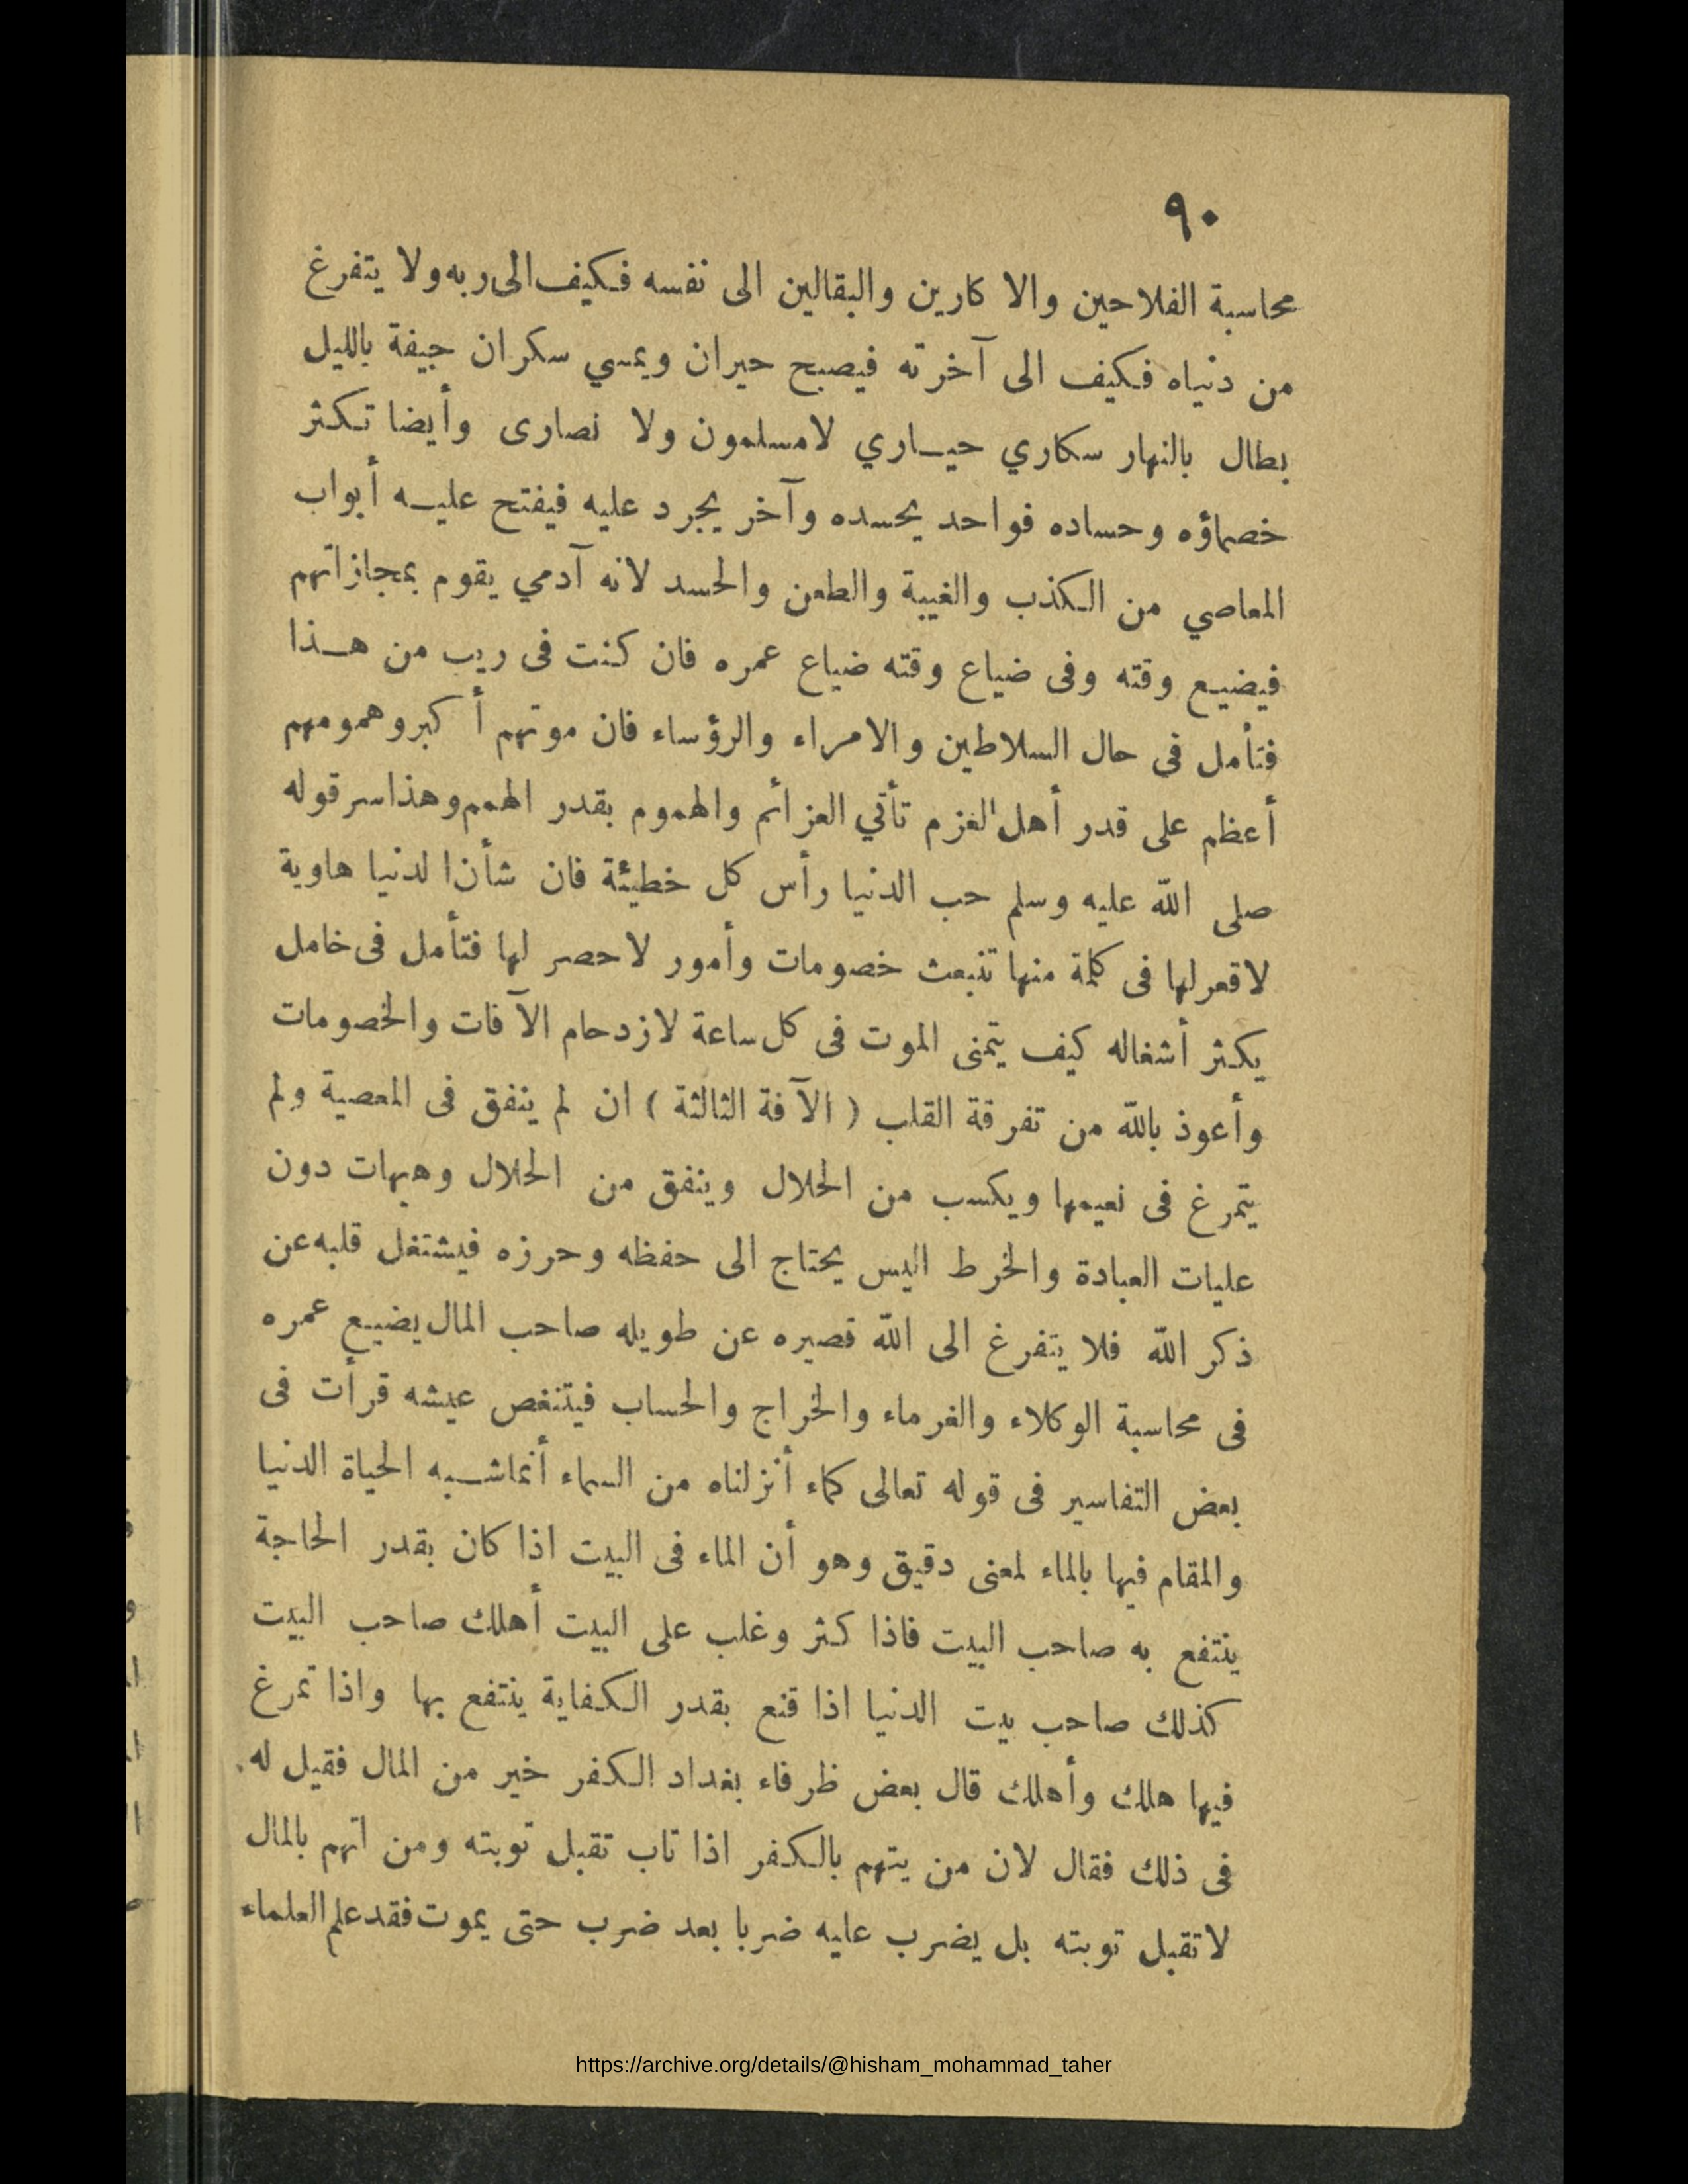 ٩٠
محاسبة الفلاحين والا كارين والبقالين الى نفسه فكيف الى ربه ولا يتفرغ
من دنياه فكيف الى آخرته فيصبح حيران ويمسي سكران جيفة بالليل
بطال بالنهار سكاري حيـاري لامسلمون ولا نصارى وأيضا تكثر
خصماؤه وحساده فواحد يحسده وآخر يجرد عليه فيفتح عليـه أبواب
المعاصي من الكذب والغيبة والطعن والحسد لانه آدمي يقوم بمجازاتهم
فيضيع وقته وفى ضياع وقته ضياع عمره فان كنت فى ريب من هـذا
فتأمل فى حال السلاطين والامراء والرؤساء فان موتهم أكبر وهمومهم
أعظم على قدر أهل العزم تأتي العزائم والهموم بقدر الهمم وهذا سر قوله
صلى الله عليه وسلم حب الدنيا رأس كل خطيئة فان شأن الدنيا هاوية
لاقعر لها فى كلمة منها تنبعث خصومات وأمور لاحصر لها فتأمل فى خامل
يكثر أشغاله كيف يتمنى الموت فى كل ساعة لازدحام الآفات والخصومات
وأعوذ بالله من تفرقة القلب ( الآفة الثالثة ) ان لم ينفق فى المعصية ولم
يتمرغ فى نعيمها ويكسب من الحلال وينفق من الحلال وهيهات دون
عليات العبادة والخرط اليس يحتاج الى حفظه وحرزه فيشتغل قلبه عن
ذكر الله فلا يتفرغ الى الله قصيره عن طويله صاحب المال يضيع عمره
فى محاسبة الوكلاء والغرماء والخراج والحساب فيتنغص عيشه قرأت فى
بعض التفاسير فى قوله تعالى كماء أنزلناه من السماء أنما شـبه الحياة الدنيا
والمقام فيها بالماء لمعنى دقيق وهو أن الماء فى البيت اذا كان بقدر الحاجة
ينتفع به صاحب البيت فاذا كثر وغلب على البيت أهلك صاحب البيت
كذلك صاحب بيت الدنيا اذا قنع بقدر الكفاية ينتفع بها واذا تمرغ
فيها هلك وأهلك قال بعض ظرفاء بغداد الكفر خير من المال فقيل له
فى ذلك فقال لان من يتهم بالكفر اذا تاب تقبل توبته ومن اتهم بالمال
لا تقبل توبته بل يضرب عليه ضربا بعد ضرب حتى يموت فقد علم العلماء
https://archive.org/details/@hisham_mohammad_taher